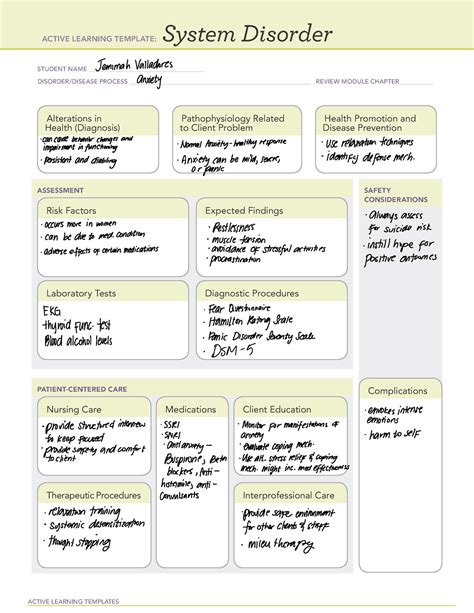 ACTIVE LEARNING TEMPLATE: System Disorder
STUDENT NAME Jemimah Valladares
DISORDER/DISEASE PROCESS Anxiety
REVIEW MODULE CHAPTER
Alterations in
Health (Diagnosis)
• can cause behavior changes and
impairment in functioning
• Persistent and disabling
Pathophysiology Related
to Client Problem
• Normal Anxiety-healthy response
• Anxiety can be mild, severe,
or panic
Health Promotion and
Disease Prevention
• Use relaxation techniques
• Identify defense mech.
ASSESSMENT
SAFETY
CONSIDERATIONS
Risk Factors
• occurs more in women
• can be due to med condition
• adverse effects of certain medications
Expected Findings
• Restlessness
• muscle tension
• avoidance of stressful activities
• procrastination
• Always assess
for suicide risk
• instill hope for
positive outcomes
Laboratory Tests
EKG
thyroid func. test
Blood alcohol levels
Diagnostic Procedures
• Fear Questionnaire
• Hamilton Rating Scale
• Panic Disorder Severity Scale
• DSM-5
PATIENT-CENTERED CARE
Nursing Care
• provide structured interview
to keep focused
• provide safety and comfort
to client
Medications
• SSRI
• SNRI
• Anti anxiety -
Buspirone, Beta
blockers, Anti-
histamine, anti-
convulsants
Client Education
• Monitor for manifestations of
anxiety
• Evaluate coping mech.
• Use alt. stress relief & coping
mech. might inc. med effectiveness
Complications
• evokes intense
emotions
• harm to self
Therapeutic Procedures
• relaxation training
• systematic desensitization
• thought stopping
Interprofessional Care
• provide safe environment
for other clients & staff
• milieu therapy
ACTIVE LEARNING TEMPLATES